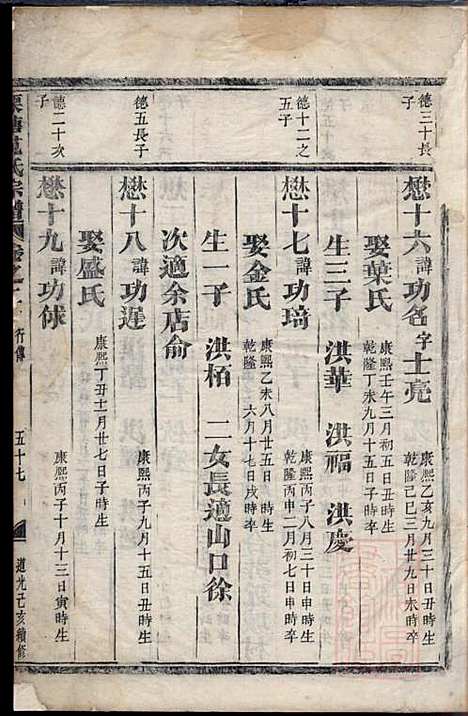 德三十長
子
懋十六諱功名字士亮
康熙乙亥九月三十日丑時生
乾隆己巳三月廿九日未時卒
娶葉氏
康熙壬午三月初五日丑時生
乾隆丁未九月十五日子時卒
生三子 洪華 洪福 洪慶
德十二之
五子
懋十七諱功琦
康熙丙子八月三十日申時生
乾隆丙申二月初七日申時卒
娶金氏
康熙乙未八月廿五日時生
乾隆 六月十七日戌時卒
生一子 洪栢 二女長適山口徐
次適余店俞
德五長子
懋十八諱功遲
康熙丙子九月十五日丑時生
娶盛氏
康熙丁丑十一月廿七日子時生
德二十次
子
懋十九諱功俅
康熙丙子十月十三日寅時生
氏宗譜 卷之 行傳 五十七 道光己亥續修